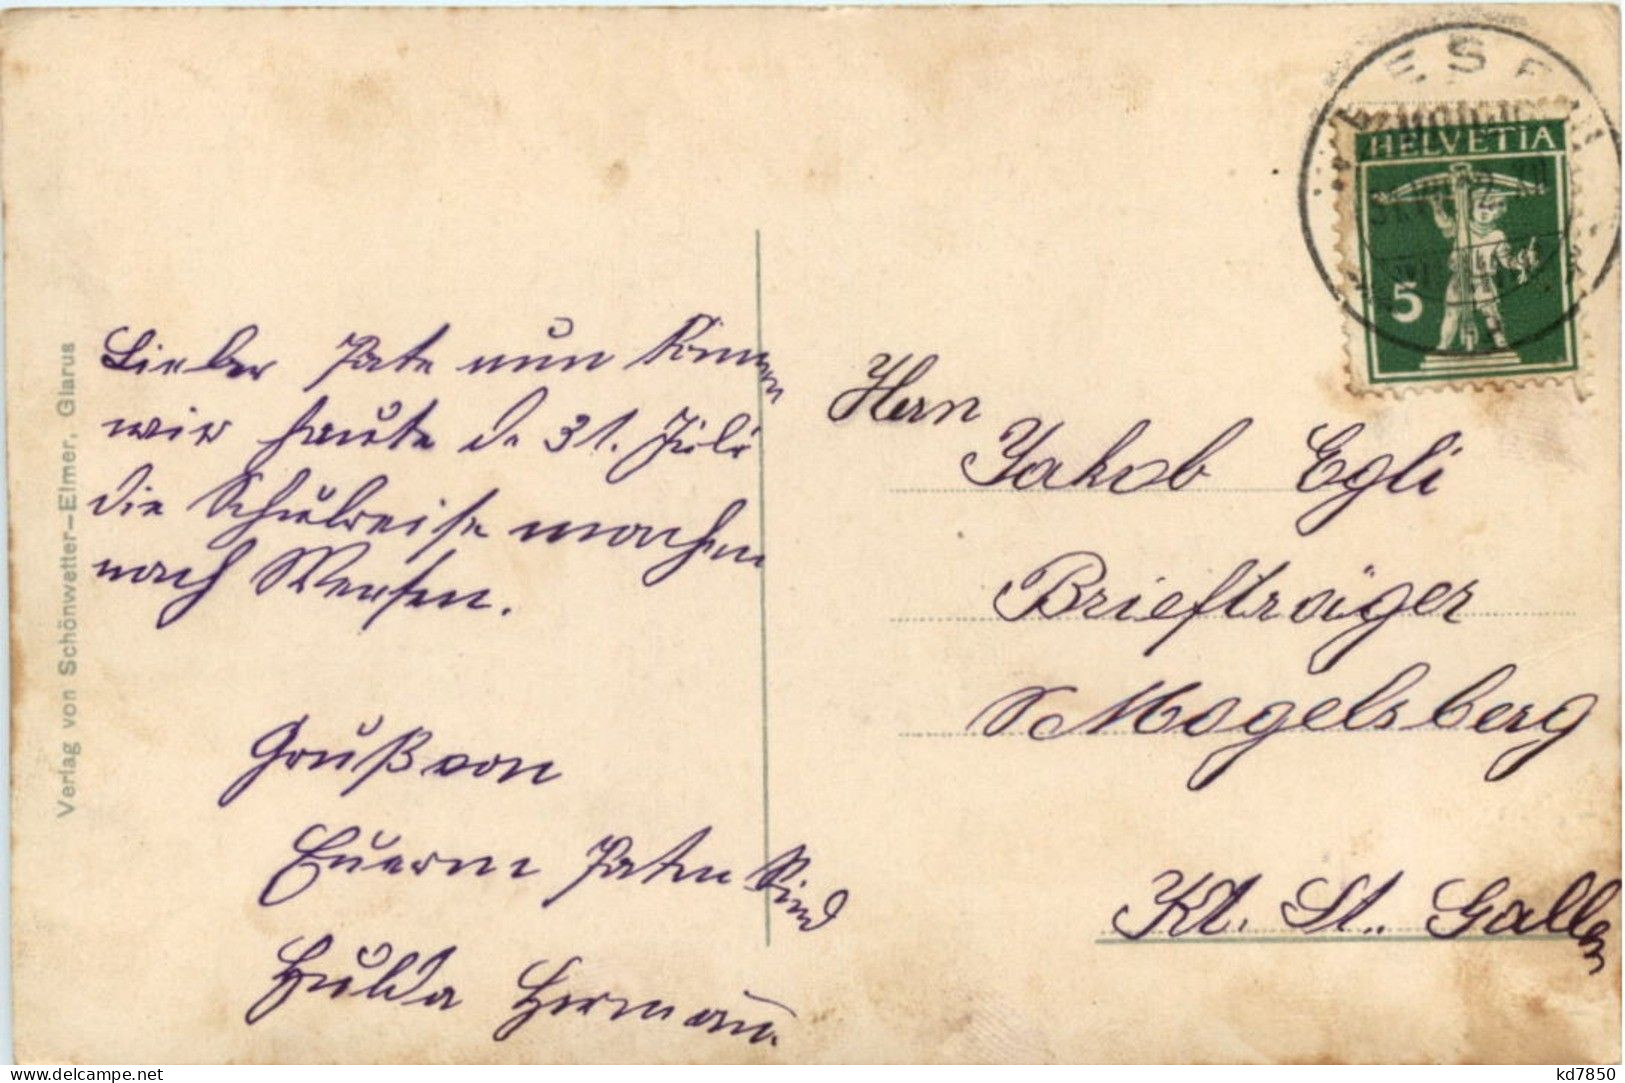 Verlag von Schönwetter-Elmer, Glarus
Lieber Pate nun können
wir heute d. 31. Juli
die Schulreise machen
nach Weesen.
Gruß von
Euerm Paten Kind
Hulda Hermann.
Hern
Jakob Egli
Briefträger
Mogelsberg
Kt. St. Gallen
HELVETIA
5
kd7850